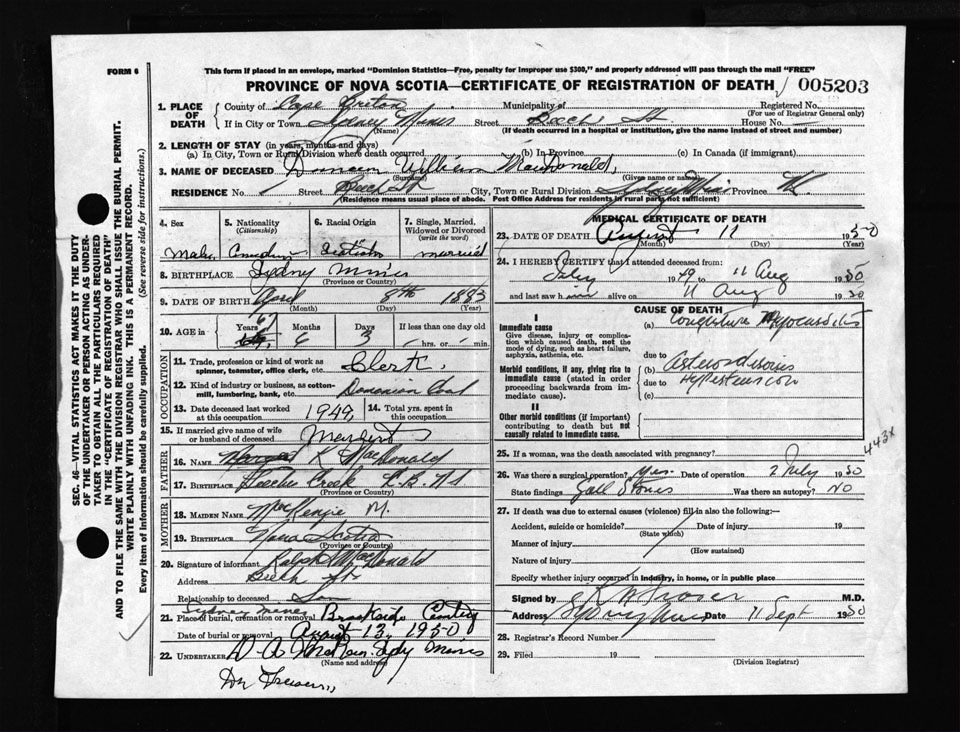 FORM 6
This form if placed in an envelope, marked "Dominion Statistics—Free, penalty for improper use $300," and properly addressed will pass through the mail "FREE"
PROVINCE OF NOVA SCOTIA—CERTIFICATE OF REGISTRATION OF DEATH 005203
SEC. 46—VITAL STATISTICS ACT MAKES IT THE DUTY
OF THE UNDERTAKER OR PERSON ACTING AS UNDER-
TAKER TO OBTAIN ALL THE PARTICULARS REQUIRED
IN THE "CERTIFICATE OF REGISTRATION OF DEATH"
AND TO FILE THE SAME WITH THE DIVISION REGISTRAR WHO SHALL ISSUE THE BURIAL PERMIT.
WRITE PLAINLY WITH UNFADING INK. THIS IS A PERMANENT RECORD.
Every item of information should be carefully supplied. (See reverse side for instructions.)
1. PLACE OF DEATH
County of Cape Breton Municipality of Registered No.
(For use of Registrar General only)
If in City or Town Sydney Mines Street Beech St House No. —
(Name) (If death occurred in a hospital or institution, give the name instead of street and number)
2. LENGTH OF STAY (in years, months and days)
(a) In City, Town or Rural Division where death occurred (b) In Province (c) In Canada (if immigrant)
3. NAME OF DECEASED Duncan William MacDonald,
(Surname) (Given name or names)
RESIDENCE No. Street Beech St City, Town or Rural Division Sydney Mines Province NS
(Residence means usual place of abode. Post Office Address for residents in rural parts not sufficient)
4. Sex
5. Nationality
(Citizenship)
6. Racial Origin
7. Single, Married, Widowed or Divorced
(write the word)
Male Canadian Scotish married
8. BIRTHPLACE Sydney Mines
(Province or Country)
9. DATE OF BIRTH April 8th 1883
(Month) (Day) (Year)
10. AGE in Years Months Days If less than one day old
67 3 hrs. or min.
OCCUPATION
11. Trade, profession or kind of work as spinner, teamster, office clerk, etc. Clerk,
12. Kind of industry or business, as cotton-mill, lumbering, bank, etc. Dominion Coal
13. Date deceased last worked at this occupation 1949
14. Total yrs. spent in this occupation
15. If married give name of wife or husband of deceased
FATHER
16. NAME K MacDonald
17. BIRTHPLACE Creek C.B. NS
(Province or Country)
MOTHER
18. MAIDEN NAME MacKenzie M.
19. BIRTHPLACE Nova Scotia
(Province or Country)
20. Signature of informant Ralph MacDonald
Address Beech St.
Relationship to deceased Son
Sydney Mines
21. Place of burial, cremation or removal Brookside Cemetery
Date of burial or removal August 13, 1950
22. UNDERTAKER D. A. Sydy Mines
(Name and address)
MEDICAL CERTIFICATE OF DEATH
23. DATE OF DEATH August 11 1950
(Month) (Day) (Year)
24. I HEREBY CERTIFY that I attended deceased from:
July 1949 to 11 Aug 1950
and last saw h alive on 11 Aug 1950
CAUSE OF DEATH
I
Immediate cause
Give disease, injury or complication which caused death, not the mode of dying, such as heart failure, asphyxia, asthenia, etc.
(a) Myocarditis
due to
Morbid conditions, if any, giving rise to immediate cause (stated in order proceeding backwards from immediate cause).
(b)
due to Hypertension
(c)
II
Other morbid conditions (if important) contributing to death but not causally related to immediate cause.
443x
25. If a woman, was the death associated with pregnancy?
26. Was there a surgical operation? Yes. Date of operation 2 July 1950
State findings Gall Stones Was there an autopsy? No
27. If death was due to external causes (violence) fill in also the following:—
Accident, suicide or homicide? Date of injury 19
(State which)
Manner of injury
(How sustained)
Nature of injury
Specify whether injury occurred in industry, in home, or in public place
Signed by Fraser M.D.
Address Date 11 Sept 1950
28. Registrar's Record Number
29. Filed 19
(Division Registrar)